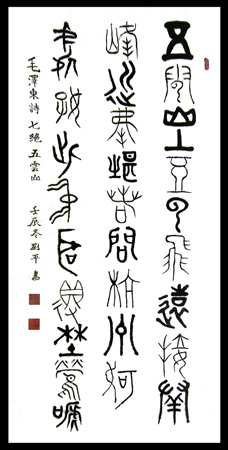 五雲山上五雲飛遠接群
峰近拂堤若問杭州何
處好此中聽得野鶯啼
毛澤東詩 七絕 五雲山 壬辰冬 平書